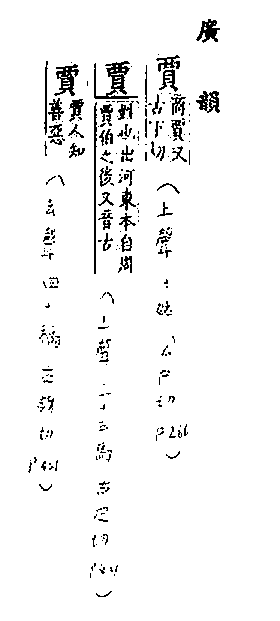 廣韻
賈 商賈又
古下切
(上聲十姥 公戶切 P266)
賈 姓也出河東本自周
賈伯之後又音古
(上聲三十五馬 古疋切
賈 賈人知
善惡
(去聲四十禡 古訝切